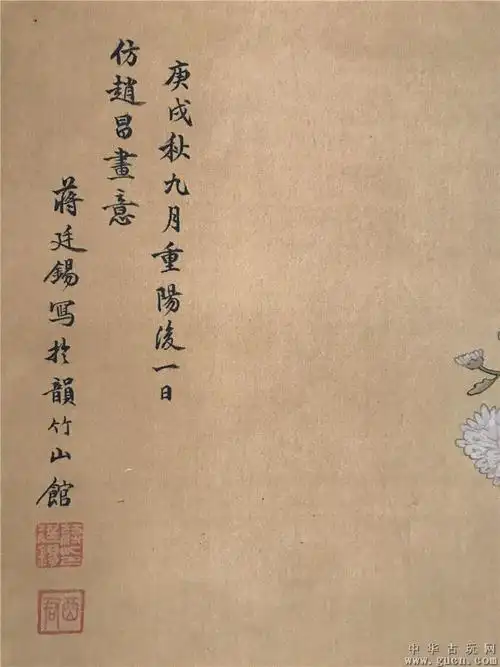 庚戌秋九月重陽後一日
仿趙昌畫意
蔣廷錫寫於韻竹山館
酉君
中华古玩网
www.gucn.com